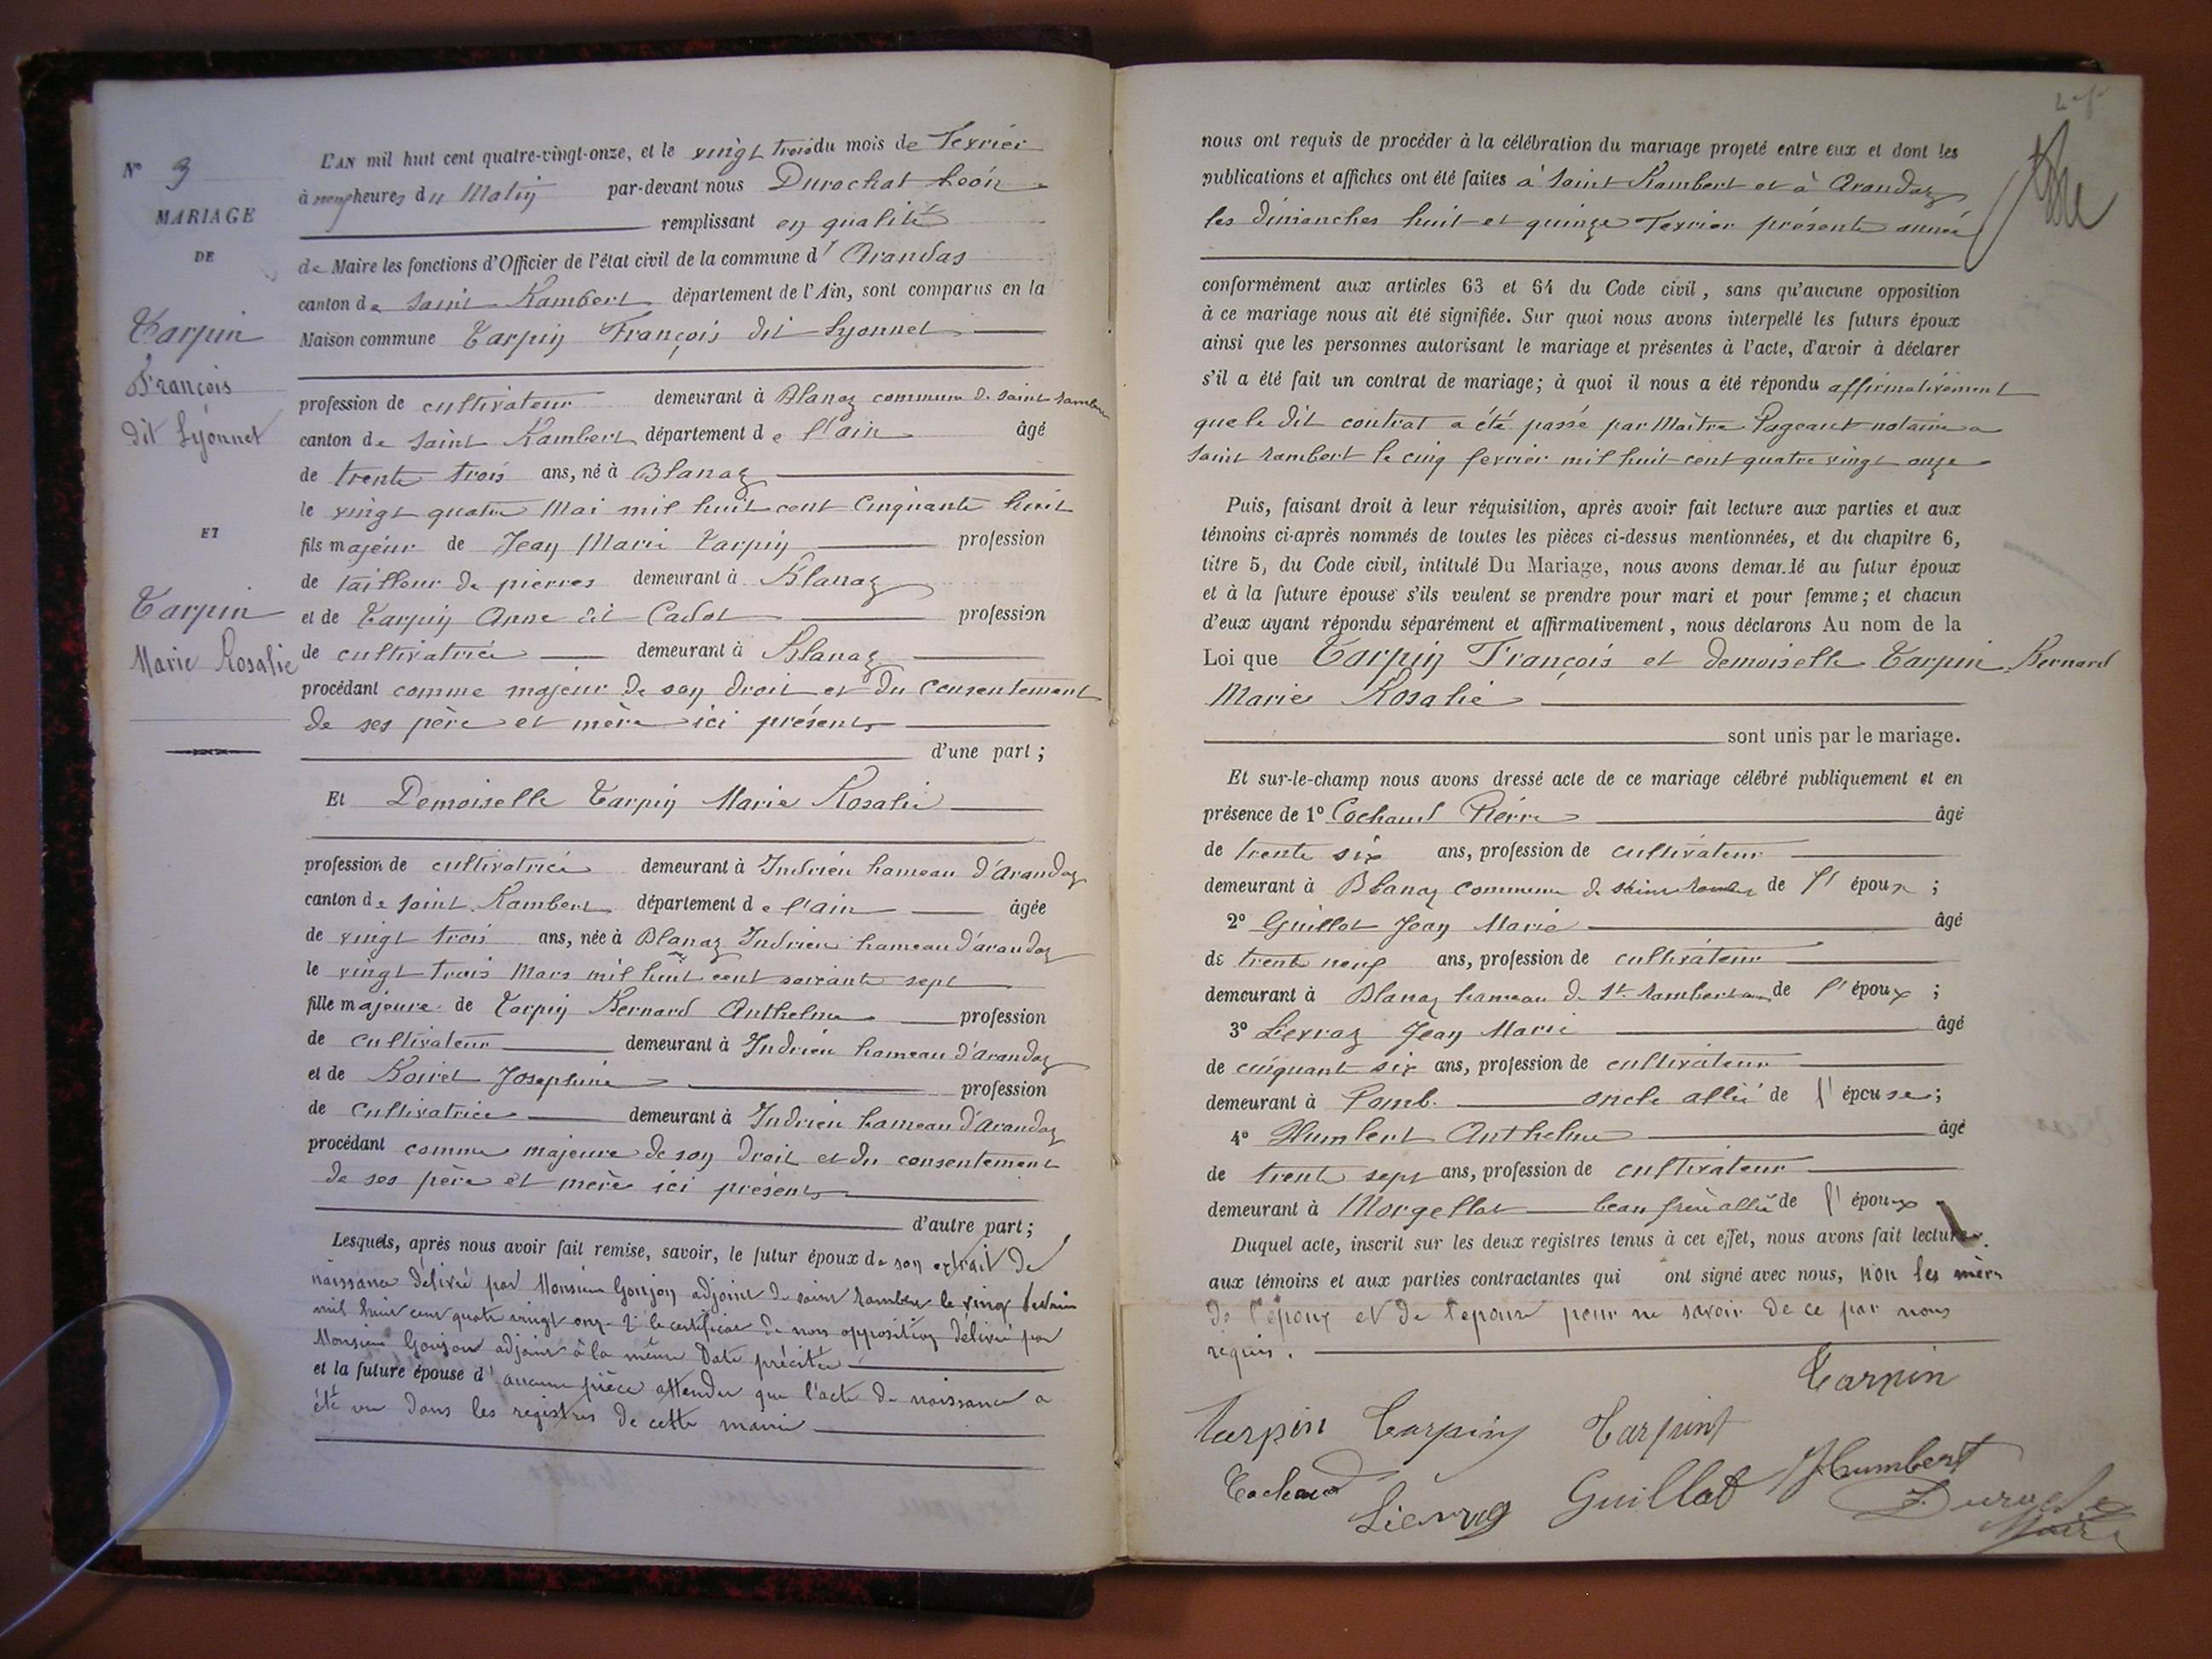 N° 3
MARIAGE
DE
Tarpin
François
dit Lyonnet
ET
Tarpin
Marie Rosalie
L'AN mil huit cent quatre-vingt-onze, et le vingt trois du mois de Fevrier
à neuf heures du Matin par-devant nous Durochat Léon
remplissant en qualité
de Maire les fonctions d'Officier de l'état civil de la commune d' Arandas
canton de Saint Rambert département de l'Ain, sont comparus en la
Maison commune Tarpin François dit Lyonnet
profession de cultivateur demeurant à Blanaz commune de Saint Rambert
canton de Saint Rambert département de l'ain âgé
de trente trois ans, né à Blanaz
le vingt quatre Mai mil huit cent Cinquante huit
fils majeur de Jean Marie Tarpin profession
de tailleur de pierres demeurant à Blanaz
et de Tarpin Anne dit Cadot profession
de cultivatrice demeurant à Blanaz
procédant comme majeur de son droit et du consentement
de ses père et mère ici présents
d'une part ;
Et Demoiselle Tarpin Marie Rosalie
profession de cultivatrice demeurant à Indrieu hameau d'Arandaz
canton de Saint Rambert département de l'ain âgée
de vingt trois ans, née à Blanaz Indrieu hameau d'arandaz
le vingt trois Mars mil huit cent soixante sept
fille majeure de Tarpin Bernard Anthelme profession
de cultivateur demeurant à Indrieu hameau d'Arandaz
et de Josephine profession
de cultivatrice demeurant à Indrieu hameau d'Arandaz
procédant comme majeure de son droit et du consentement
de ses père et mère ici présents
d'autre part ;
Lesquels, après nous avoir fait remise, savoir, le futur époux de son extrait de
naissance délivré par Monsieur Goujon adjoint de saint rambert le vingt
mil huit cent quatre vingt onze 2° le certificat de non opposition délivré par
Monsieur Goujon adjoint à la même date précitée
et la future épouse d'aucune pièce attendu que l'acte de naissance a
été vu dans les registres de cette mairie
nous ont requis de procéder à la célébration du mariage projeté entre eux et dont les
publications et affiches ont été faites à Saint Rambert et à Arandaz
les dimanches huit et quinze Fevrier présente année
conformément aux articles 63 et 64 du Code civil, sans qu'aucune opposition
à ce mariage nous ait été signifiée. Sur quoi nous avons interpellé les futurs époux
ainsi que les personnes autorisant le mariage et présentes à l'acte, d'avoir à déclarer
s'il a été fait un contrat de mariage; à quoi il nous a été répondu affirmativement
que le dit contrat a été passé par Maître Pageaut notaire a
Saint Rambert le cinq fevrier mil huit cent quatre vingt onze
Puis, faisant droit à leur réquisition, après avoir fait lecture aux parties et aux
témoins ci-après nommés de toutes les pièces ci-dessus mentionnées, et du chapitre 6,
titre 5, du Code civil, intitulé Du Mariage, nous avons demandé au futur époux
et à la future épouse s'ils veulent se prendre pour mari et pour femme; et chacun
d'eux ayant répondu séparément et affirmativement, nous déclarons Au nom de la
Loi que Tarpin François et demoiselle Tarpin Bernard
Marie Rosalie
sont unis par le mariage.
Et sur-le-champ nous avons dressé acte de ce mariage célébré publiquement et en
présence de 1° Cochaud Pierre âgé
de trente six ans, profession de cultivateur
demeurant à Blanaz commune de Saint Rambert de l'époux ;
2° Guillot Jean Marie âgé
de trente neuf ans, profession de cultivateur
demeurant à Blanaz hameau de St Rambert de l'époux ;
3° Lievraz Jean Marie âgé
de cinquante six ans, profession de cultivateur
demeurant à oncle allié de l'épouse;
4° Humbert Anthelme âgé
de trente sept ans, profession de cultivateur
demeurant à Morgellat beau frère allié de l'époux
Duquel acte, inscrit sur les deux registres tenus à cet effet, nous avons fait lecture
aux témoins et aux parties contractantes qui ont signé avec nous, non les mères
de l'époux et de l'epouse pour ne savoir de ce par nous
requis.
Tarpin
Tarpin Tarpin Tarpin
Cochaud Lievraz Guillot Humbert
Maire